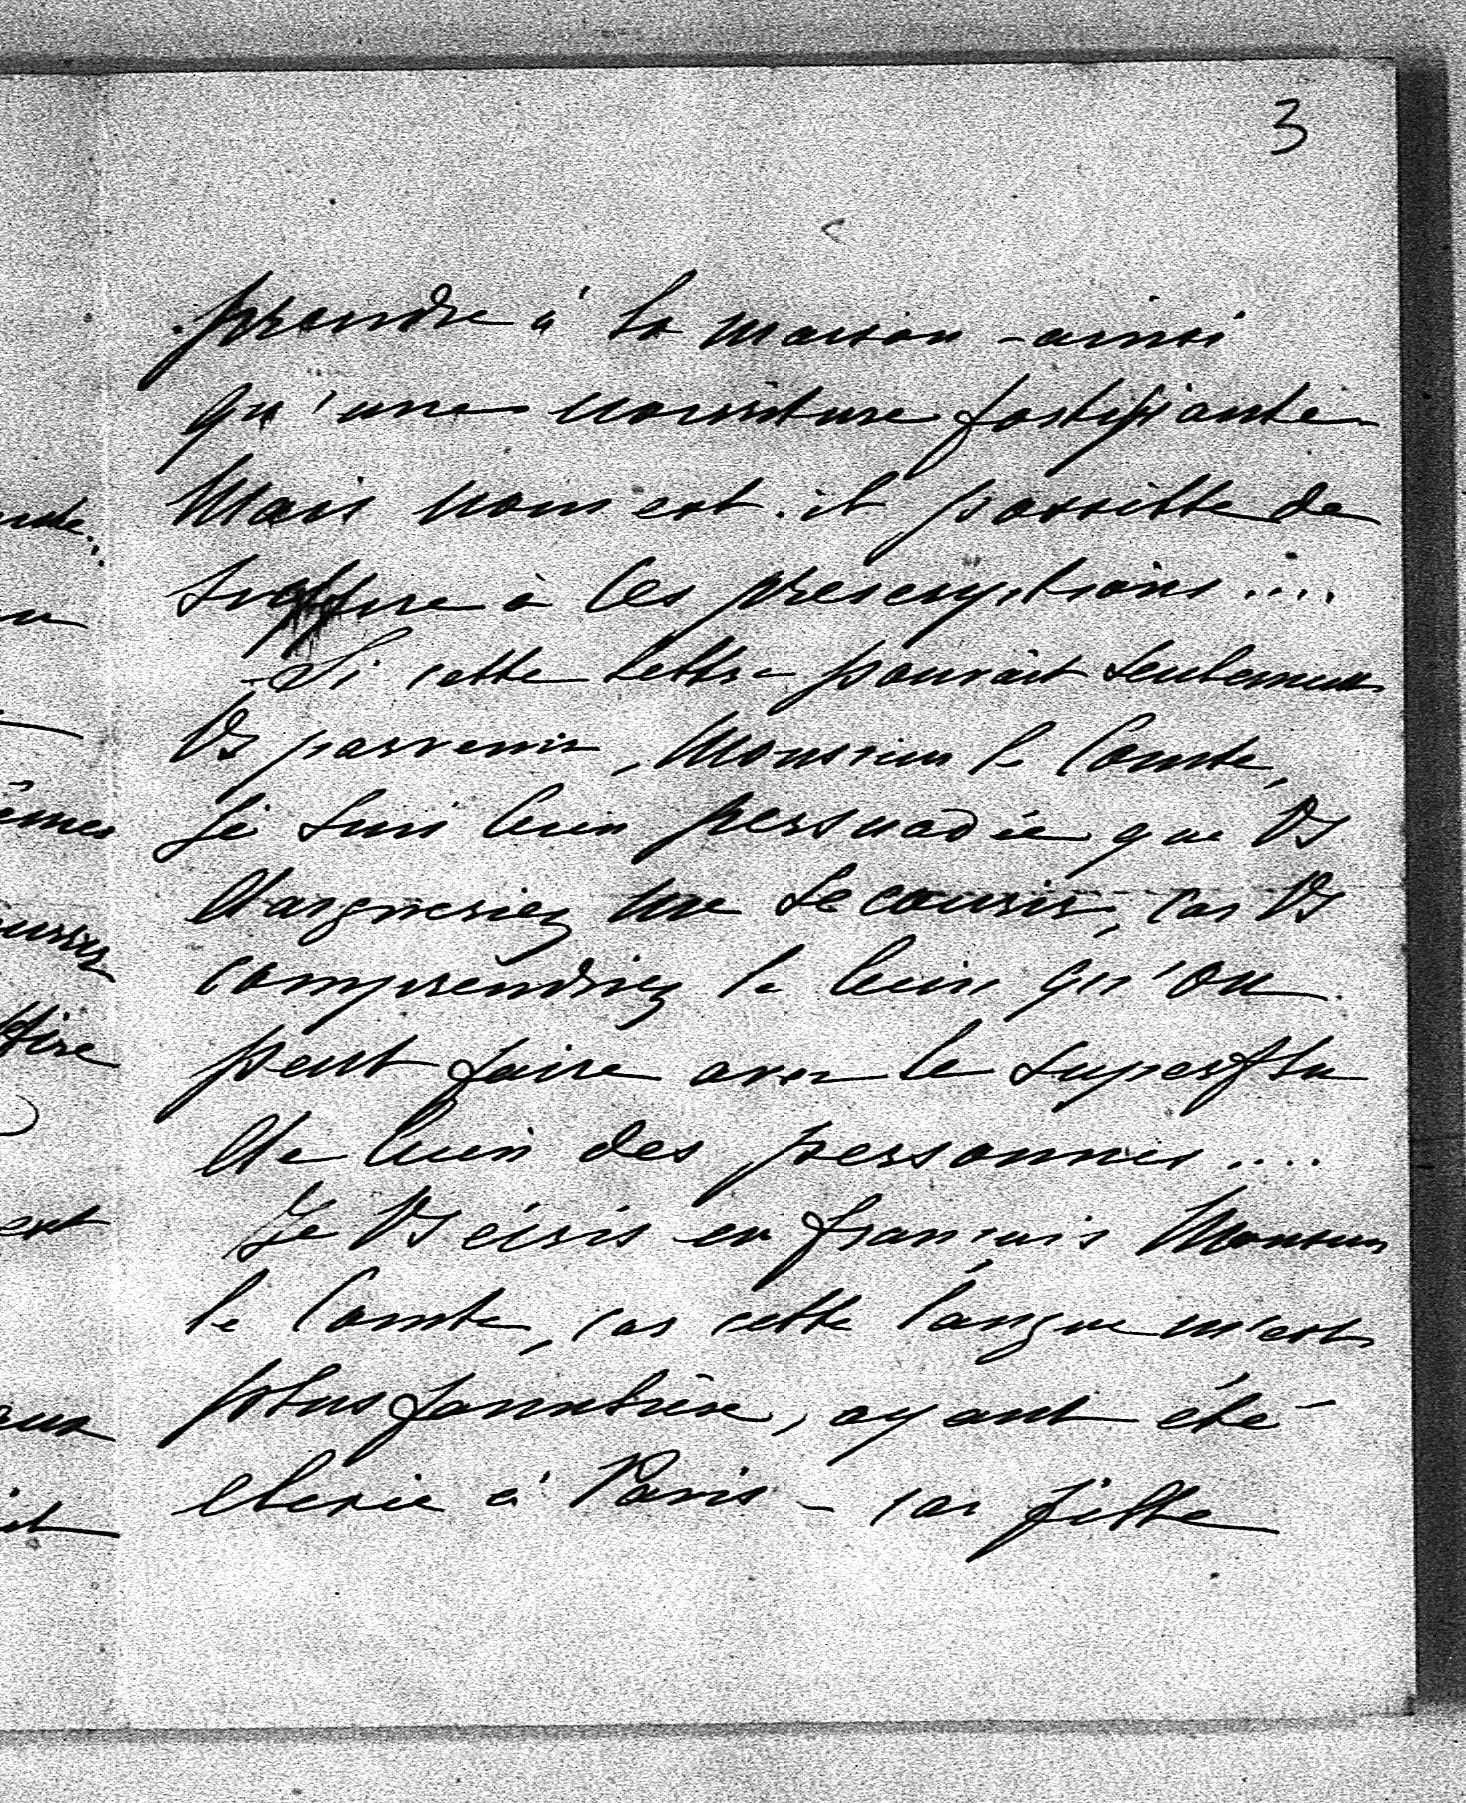 3
prendre à la maison - ainsi
qu'une nourriture fortifiante
Mais nous est-il possible de
suffire à ces prescriptions ....
- Si cette lettre pouvait seulement
Vs parvenir, Monsieur le Comte,
Je suis bien persuadée que Vs
daigneriez me secourir, car Vs
comprendriez le bien qu'on
peut faire avec le superflu
de bien des personnes ....
Je Vs écris en français Monsieur
le Comte, car cette langue m'est
plus familière, ayant été
élevée à Paris - car fille